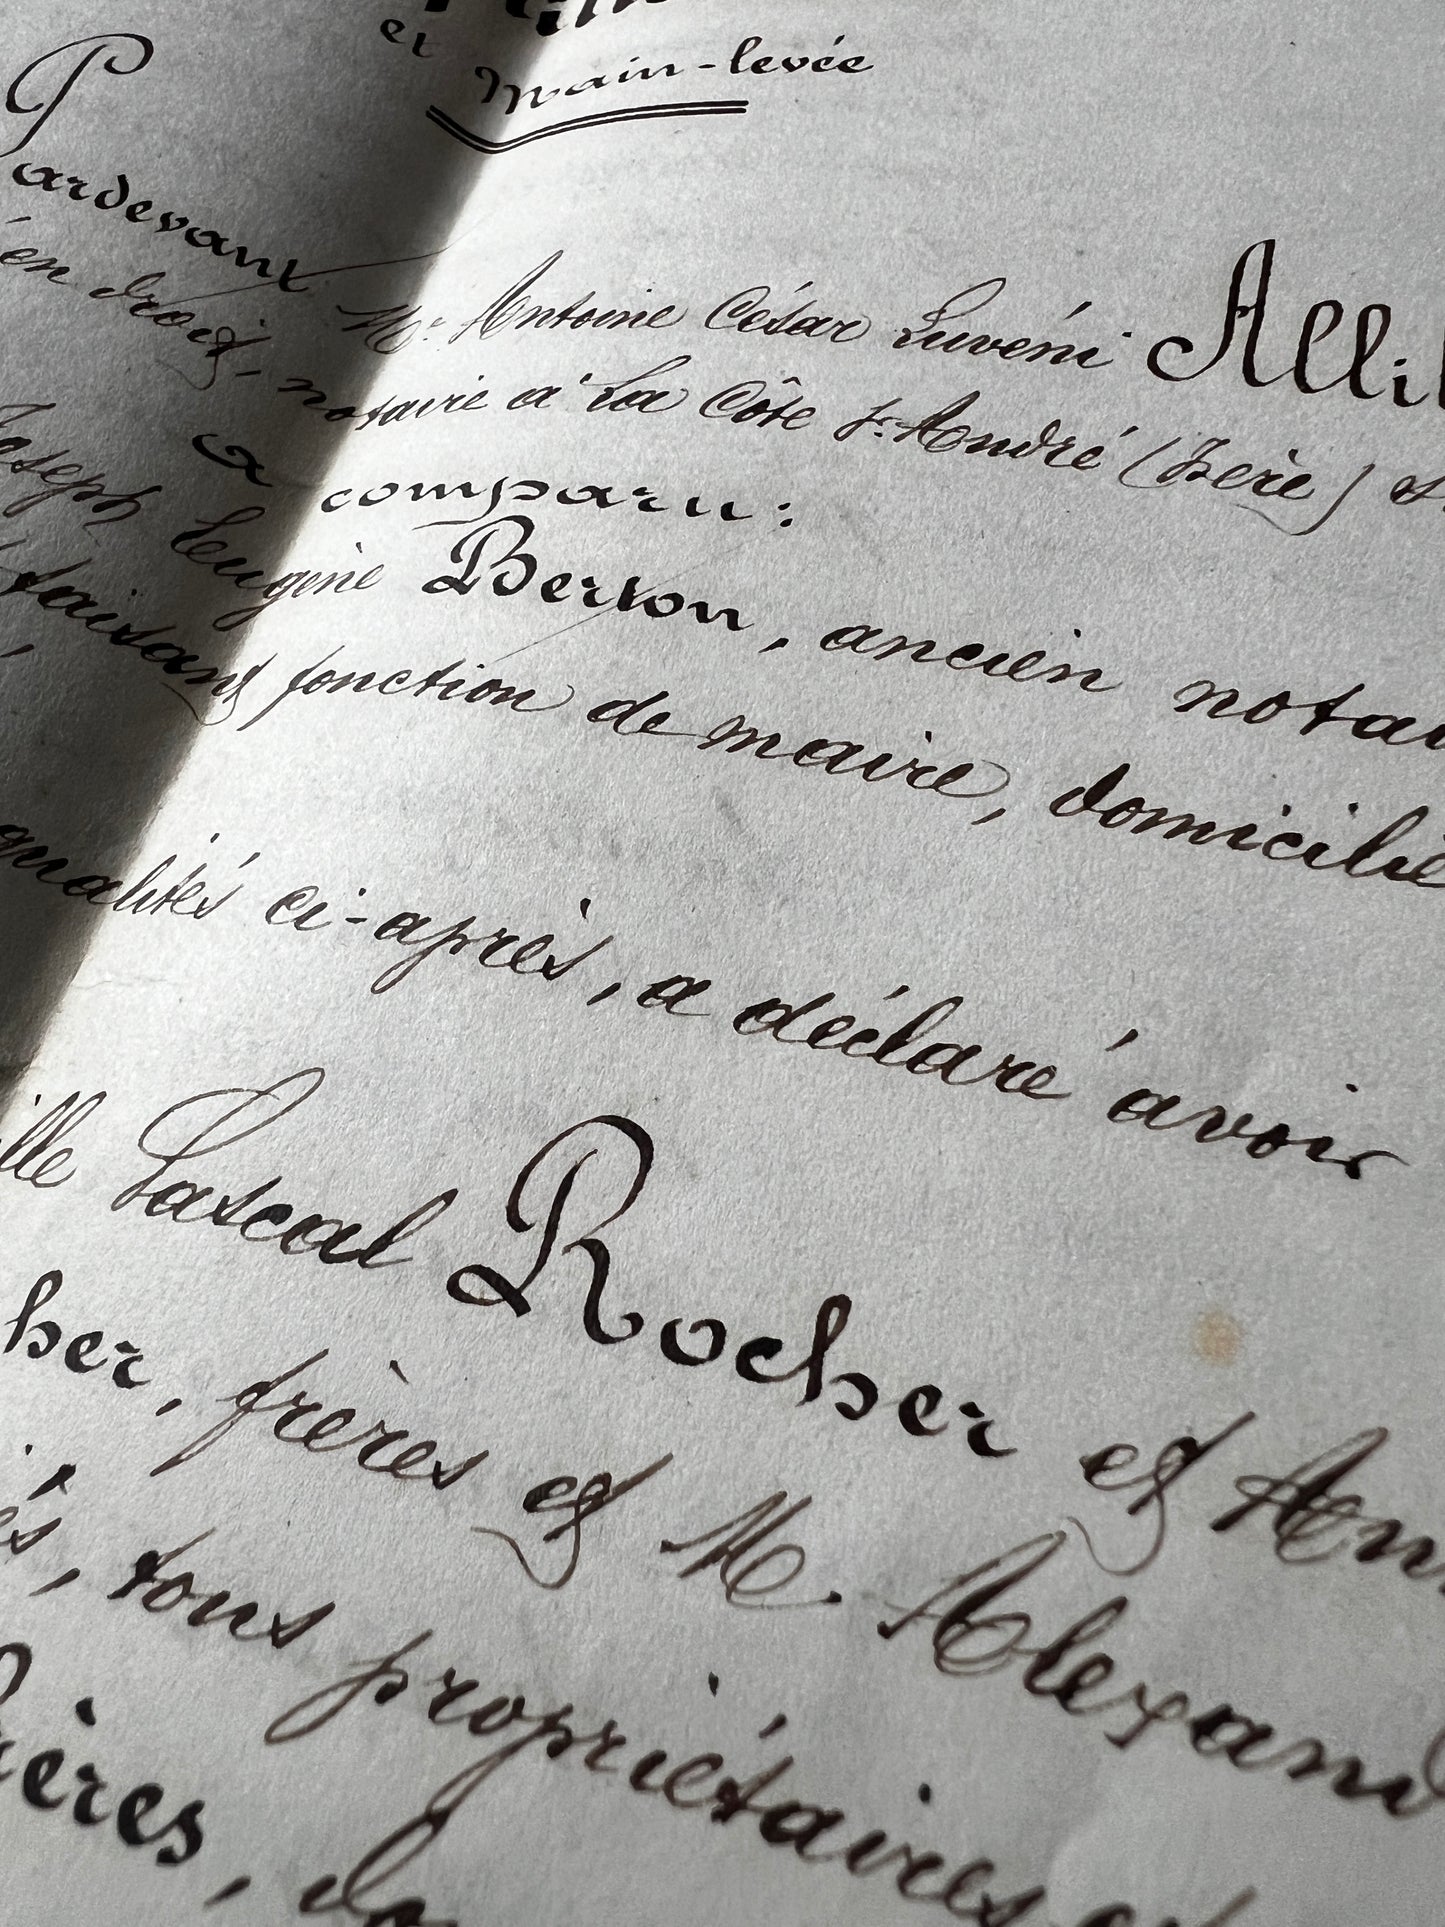 et
Main-levée
Pardevant Me Antoine César Luvéni
en droit, notaire à La Côte St. André (Isère)
a comparu:
Joseph Eugène Berton, ancien
faisant fonction de maire, domicilié
qualités ci-après, a déclaré avoir
Pascal Rocher et
frères et M.
tous propriétaires